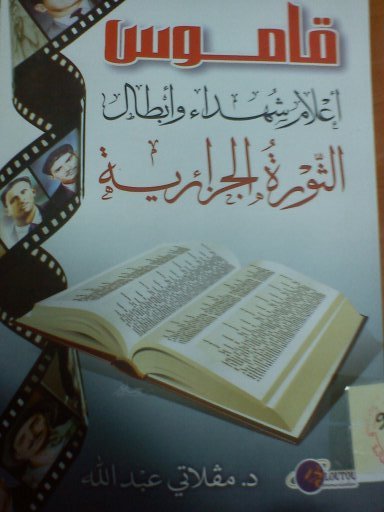 قاموس
أعلام شهداء وأبطال
الثَّورةُ الجزائرية
د. مڤلاتي عبد الله